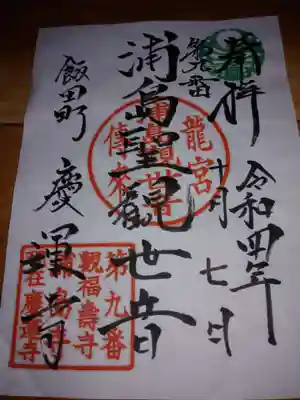 奉拝
令和四年
十月七日
第九番
浦島聖観世音
飯田町
慶運寺
龍宮
傳来
第九番
観福壽寺
浦島寺
在慶運寺